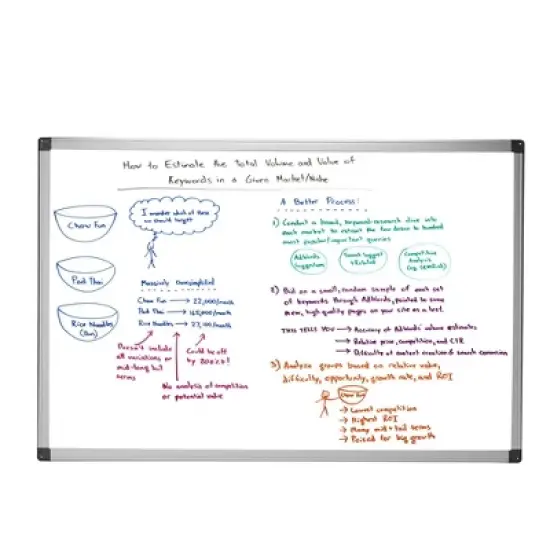 How to Estimate the Total Volume and Value of
Keywords in a Given Market/Niche
Chow Fun
Pad Thai
Rice Noodles
(Bún)
I wonder which of these
we should target
Massively Oversimplified
Chow Fun → 22,000/month
Pad Thai → 165,000/month
Rice Noodles → 27,100/month
Doesn't include
all variations, or
mid-long tail
terms
Could be off
by 200x!
No analysis of competition
or potential value
A Better Process:
1) Conduct a broad, keyword-research dive into
each market to extract the few dozen to hundred
most popular/important queries
AdWords
Suggestion
Search Suggest
+ Related
Competitive
Analysis
(e.g. SEMRush)
2) Bid on a small, random sample of each set
of keywords through AdWords, pointed to some
high quality pages on your site as a test.
THIS TELLS YOU → Accuracy of AdWords' volume estimates
→ Relative price, competition, and CTR
→ Difficulty of content creation & search conversion
3) Analyze groups based on relative value,
difficulty, opportunity, growth rate, and ROI
Chow Fun
→ Lowest competition
→ Highest ROI
→ Many mid + tail terms
→ Poised for big growth